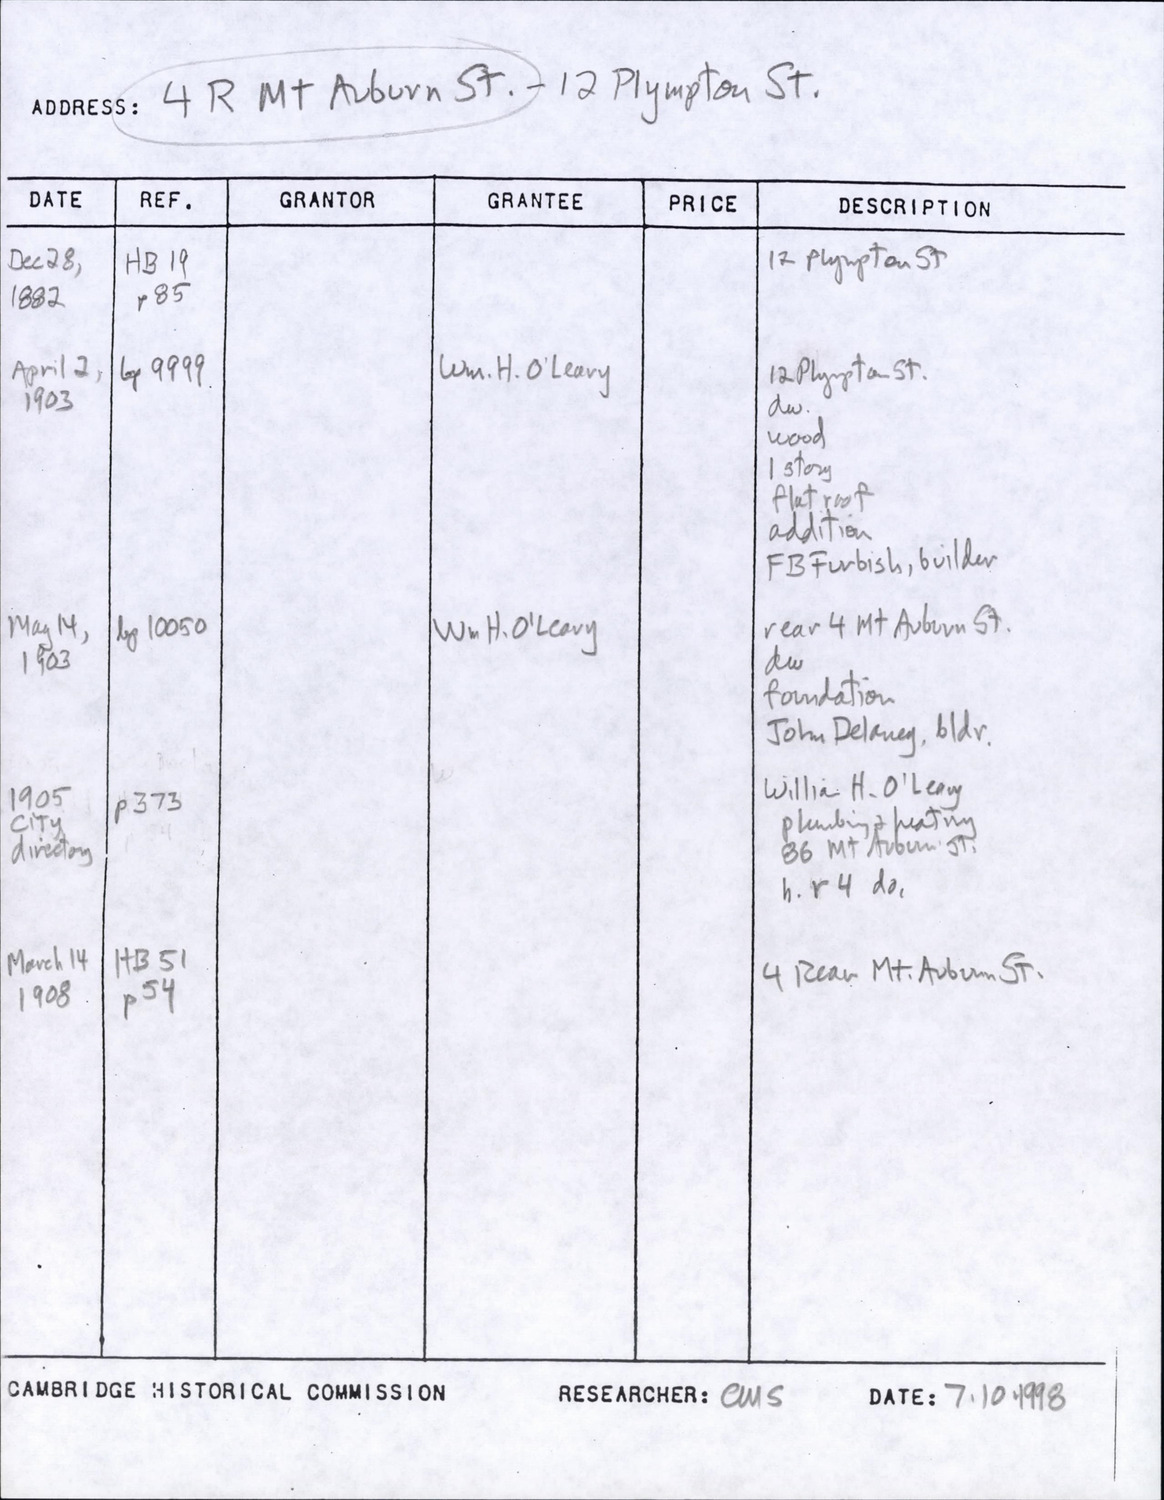 ADDRESS: 4 R Mt Auburn St. - 12 Plympton St.
DATE REF. GRANTOR GRANTEE PRICE DESCRIPTION
Dec 28, HB 19 12 Plympton St
1882 p 85
April 2, bp 9999 Wm. H. O'Leary 12 Plympton St.
1903
dw.
wood
1 story
flat roof
addition
FB Furbish, builder
May 14, bp 10050 Wm H. O'Leary rear 4 Mt Auburn St.
1903 dw
foundation
John Delaney, bldr.
1905 p 373 Willia H. O'Leary
City plumbing & heating
directory 86 Mt Auburn St.
h. r 4 do.
March 14 HB 51 4 Rear Mt. Auburn St.
1908 p 54
CAMBRIDGE HISTORICAL COMMISSION RESEARCHER: CMS DATE: 7.10.1998